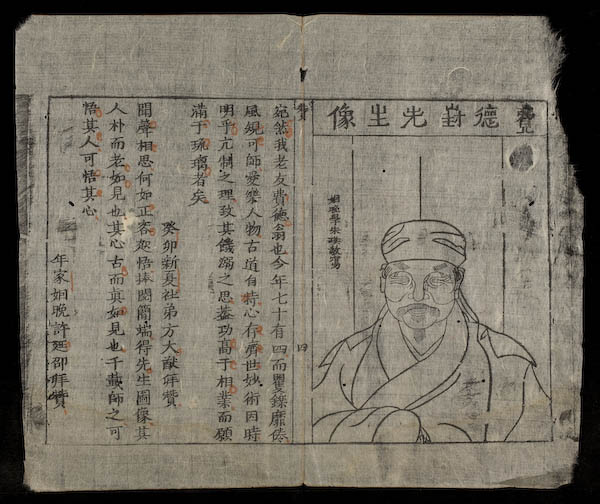 費德葑先生像
姻晚學朱璞敬寫
贊
四
宛然我老友費德翁也今年七十有四而矍鑠靡倦
風規可師愛樂人物古道自持心存濟世妙術因時
明乎亢制之理致其饑溺之思蓋功高于相業而願
滿于琉璃者矣
癸卯新夏社弟方大猷拜贊
聞聲相思何如正容恕悟捧閱簡端得先生圖像其
人朴而老如見也其心古而真如見也千載師之可
悟其人可悟其心
年家姻晚許延邵拜贊